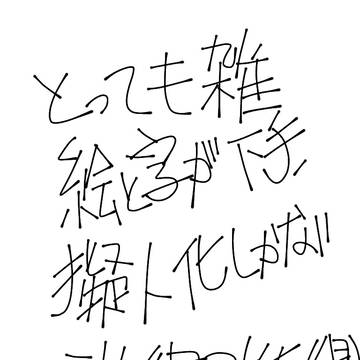 とっても雑
絵と字が下手
擬人化しかない